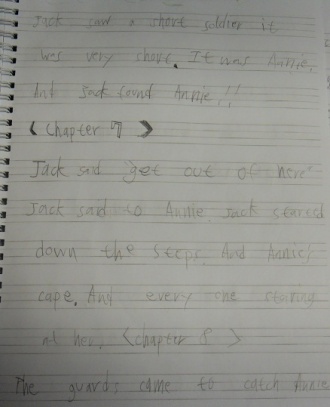 Jack saw a short soldier it
was very short. It was Annie.
And Jack found Annie!!
< Chapter 7 >
Jack said "get out of here"
Jack said to Annie Jack stared
down the steps. And Annie's
cape. And every she staring
at her. < chapter 8 >
The guards came to catch Annie